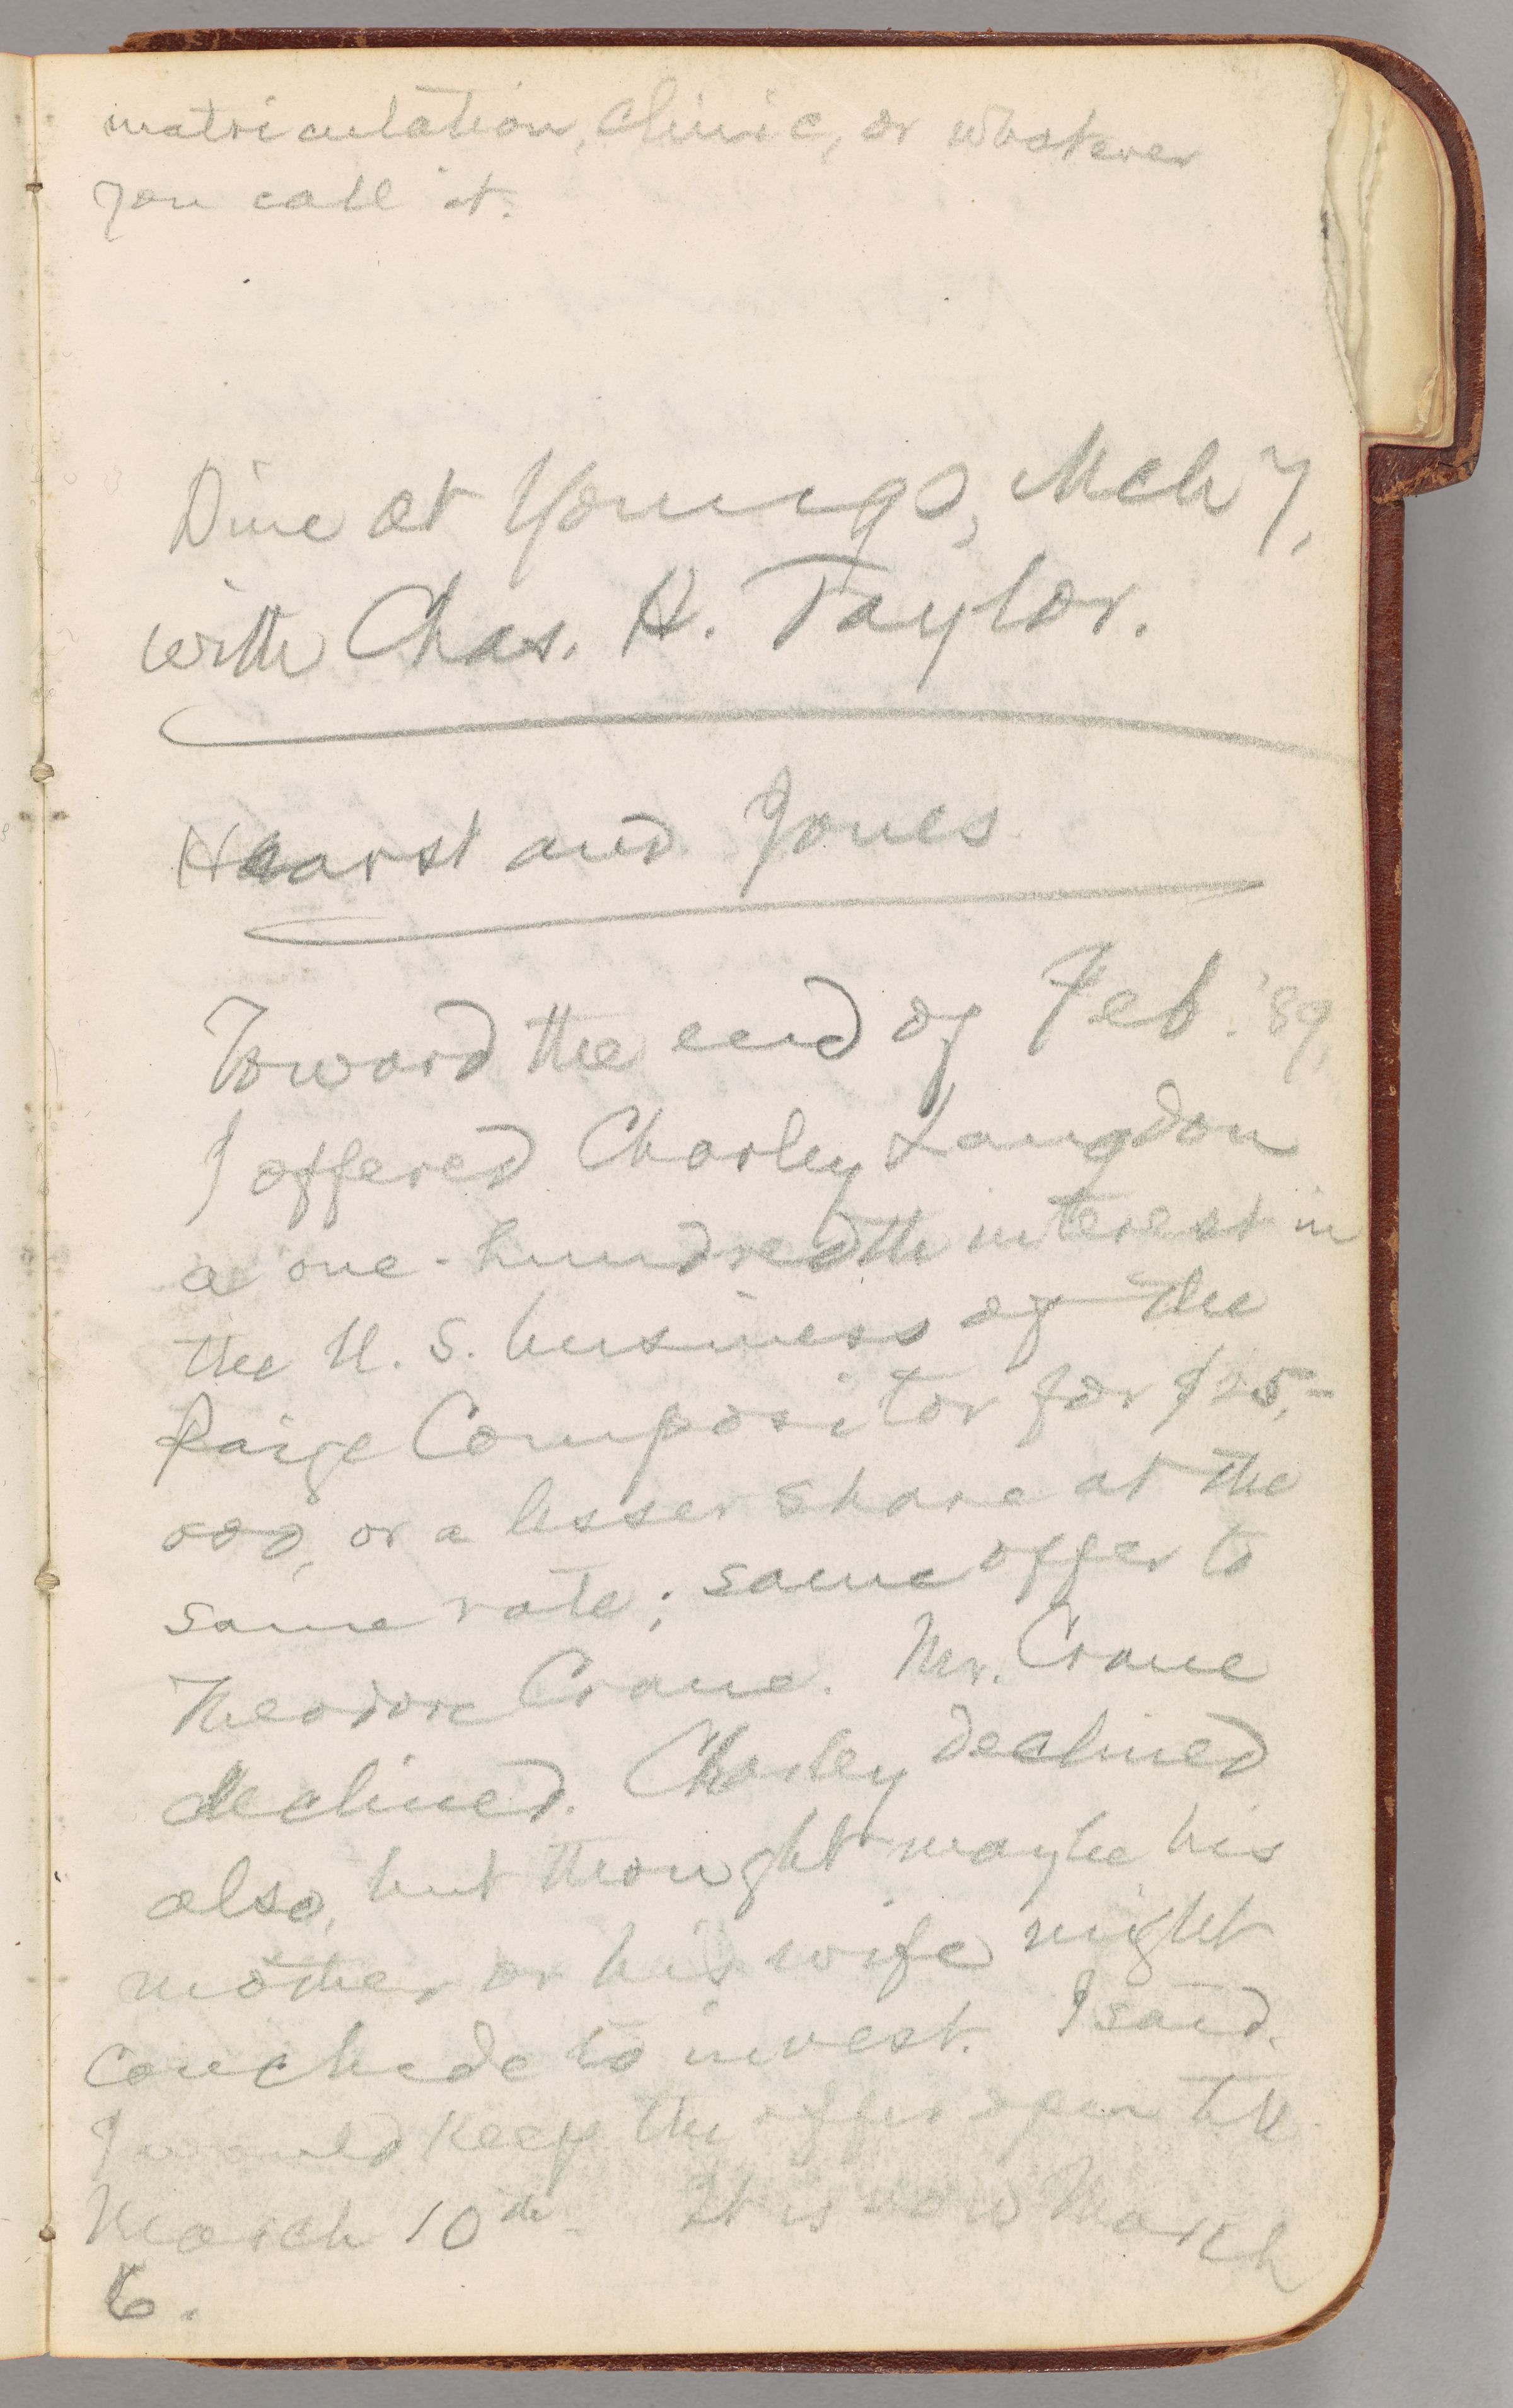 matriculation, clinic, or whatever
you call it.
Dine at Youngs, Mch 7,
with Chas. H. Taylor.
Hearst and Jones
Toward the end of Feb. '89,
I offered Charley Langdon
a one-hundredth interest in
the U. S. business of the
Paige Compositor for $25,-
000, or a lesser share at the
same rate; same offer to
Theodore Crane. Mr. Crane
declined. Charley declined
also, but thought maybe his
mother or his wife might
conclude to invest. I said
I would keep the offer open till
March 10th. It is now March
6.